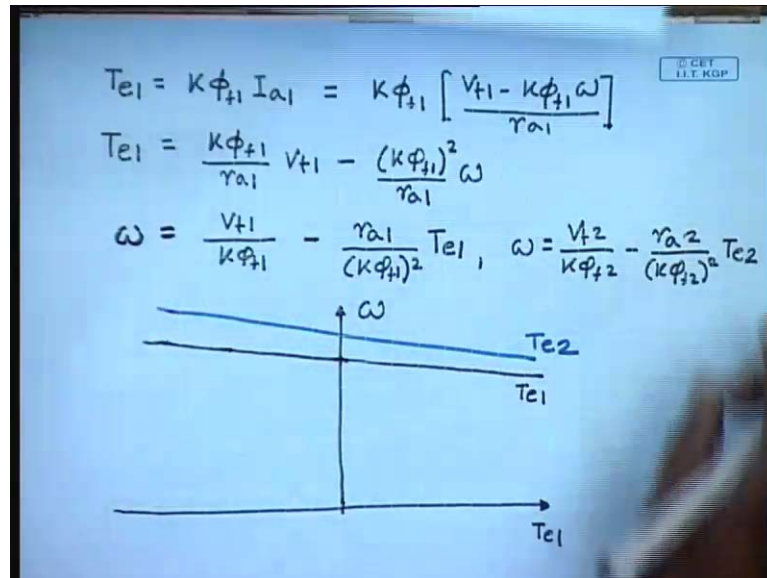 © CET
I.I.T. KGP
Te1 = Kϕf1 Ia1 = Kϕf1 [ (Vt1 - Kϕf1 ω) / ra1 ]
Te1 = Kϕf1 / ra1 Vt1 - (Kϕf1)² / ra1 ω
ω = Vt1 / Kϕf1 - ra1 / (Kϕf1)² Te1, ω = Vt2 / Kϕf2 - ra2 / (Kϕf2)² Te2
ω
Te2
Te1
Te1